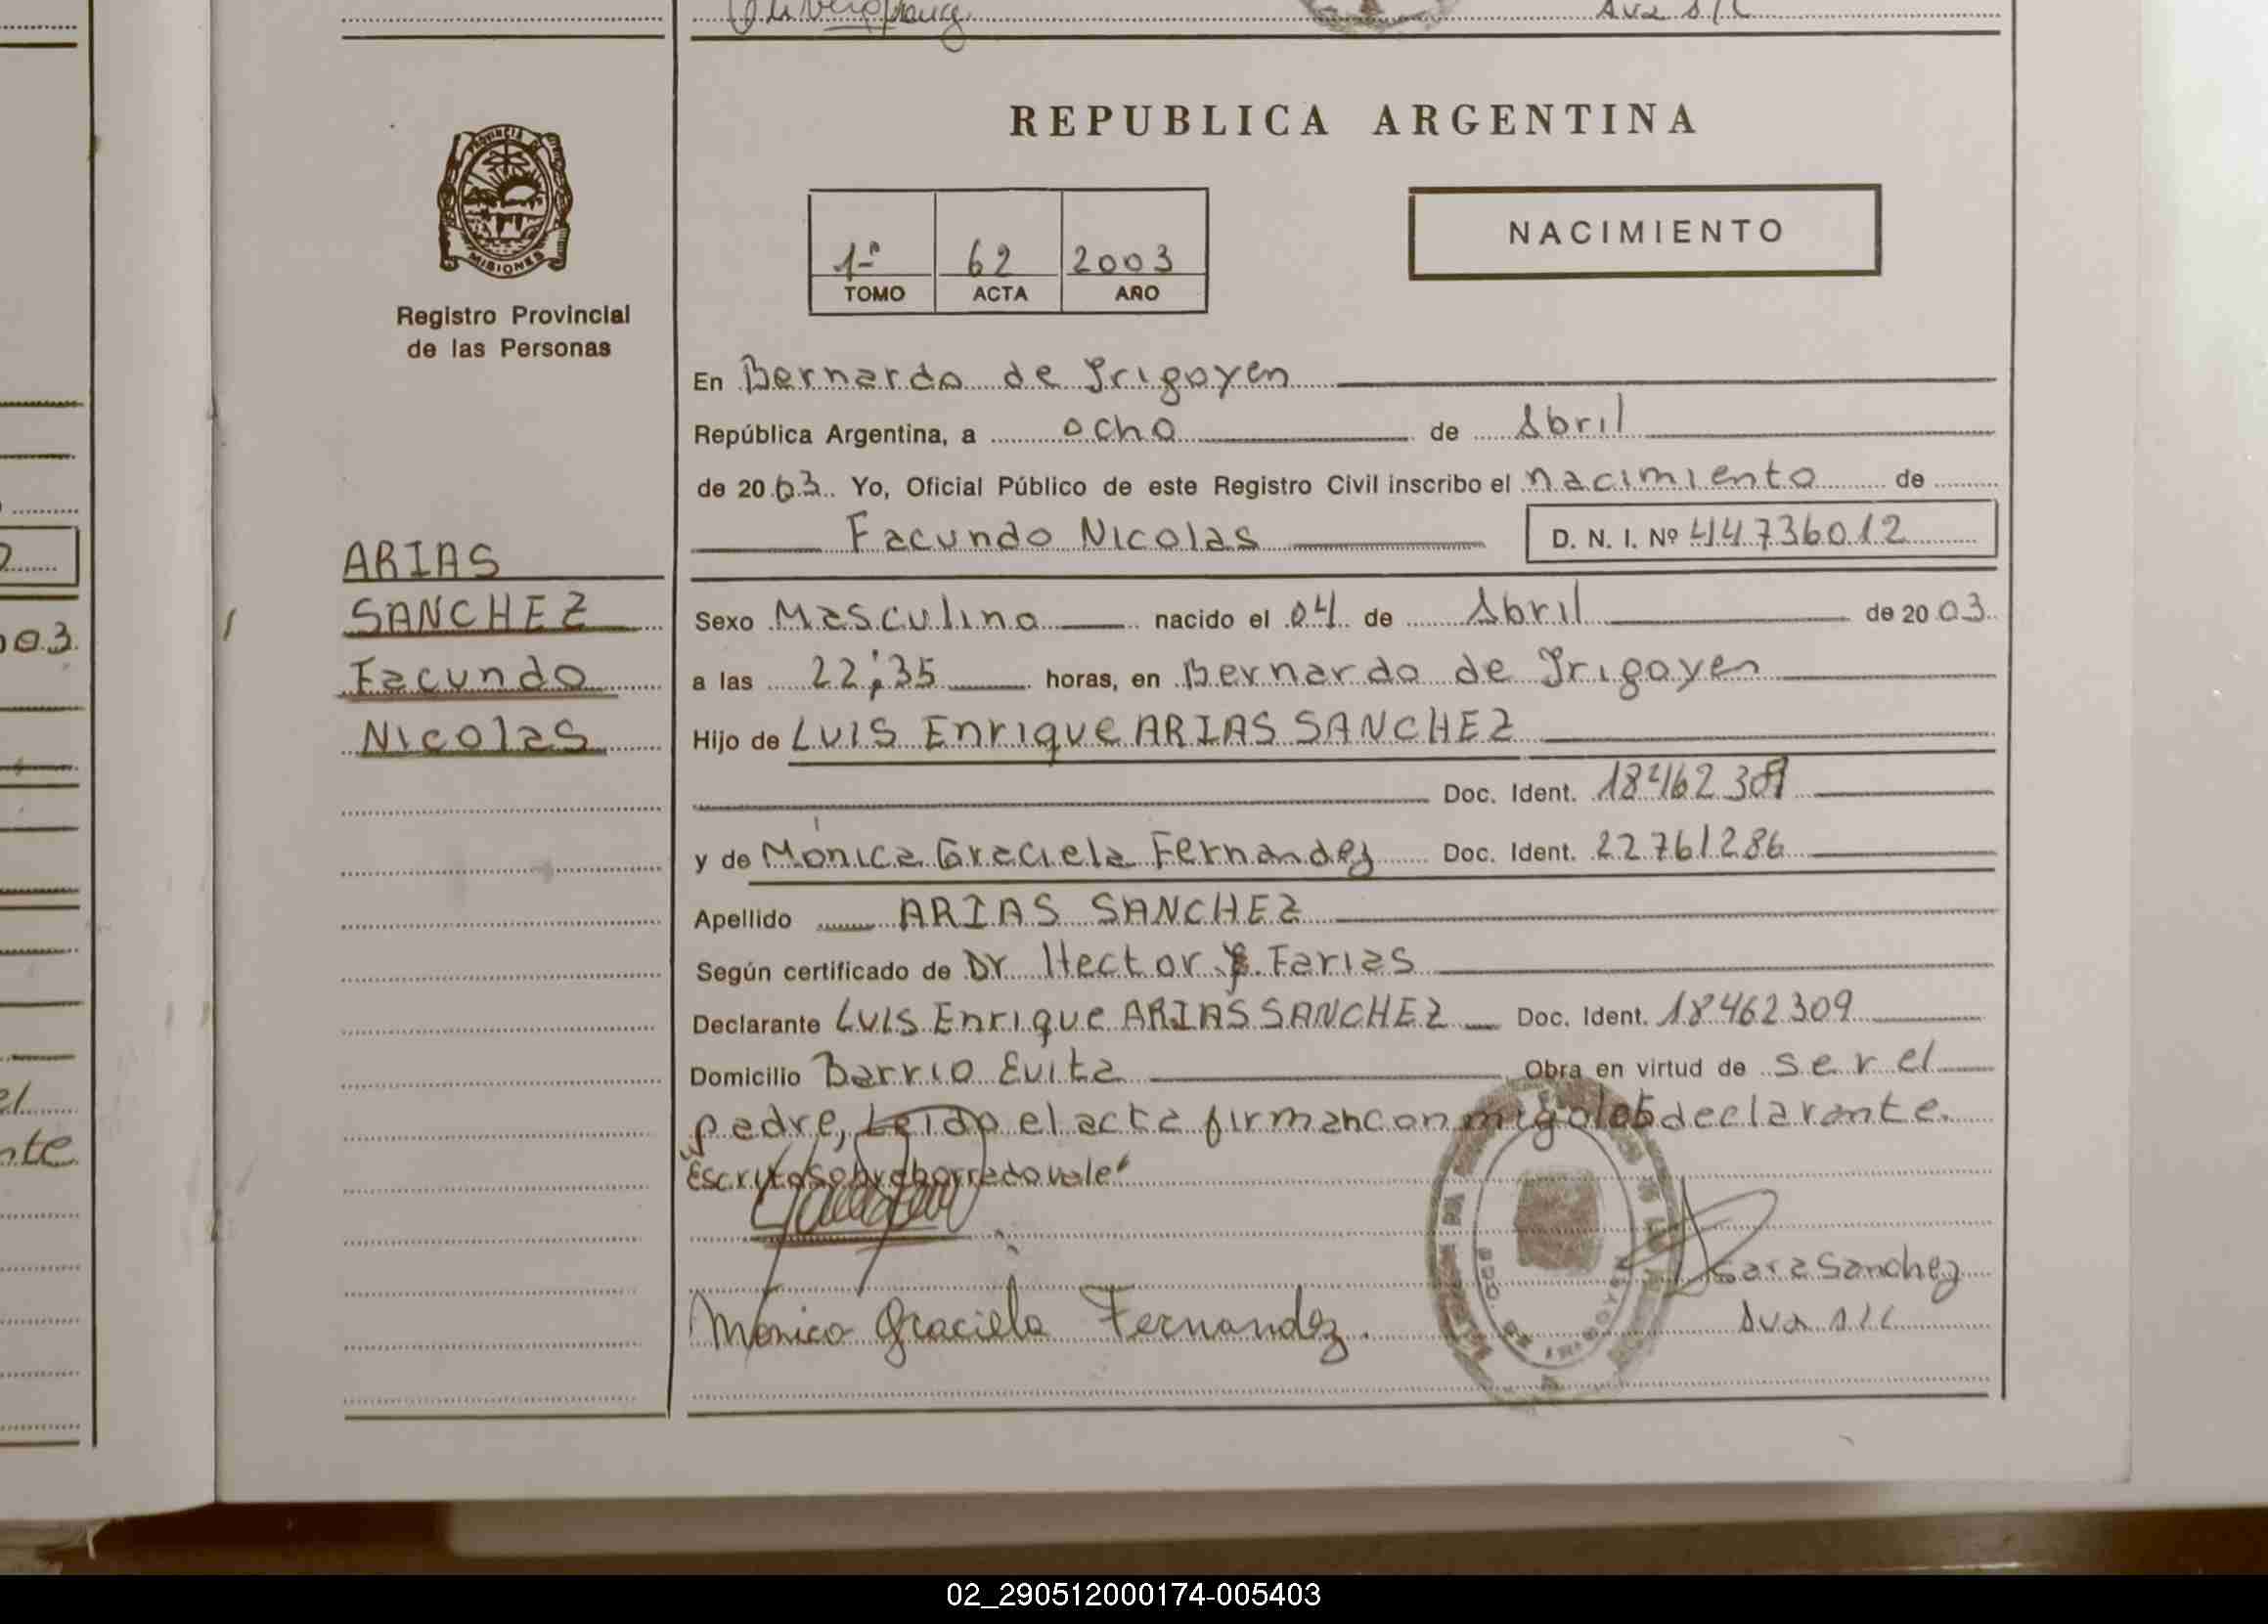 REPUBLICA ARGENTINA
PROVINCIA DE
MISIONES
Registro Provincial
de las Personas
1º 62 2003
TOMO ACTA AÑO
NACIMIENTO
En Bernardo de Irigoyen
República Argentina, a ocho de Abril
de 2003. Yo, Oficial Público de este Registro Civil inscribo el nacimiento de
Facundo Nicolas D. N. I. Nº 44736012
ARIAS
SANCHEZ
Facundo
Nicolas
Sexo Masculino nacido el 04 de Abril de 2003.
a las 22:35 horas, en Bernardo de Irigoyen
Hijo de Luis Enrique ARIAS SANCHEZ
Doc. Ident. 18462309
y de Mónica Graciela Fernandez Doc. Ident. 22761286
Apellido ARIAS SANCHEZ
Según certificado de Dr Hector Farias
Declarante Luis Enrique ARIAS SANCHEZ Doc. Ident. 18462309
Domicilio Barrio Evita Obra en virtud de ser el
padre, Leido el acta firman conmigo los declarante.
"Escrito sobre borrado vale"
Sara Sanchez
Monica Graciela Fernandez.
BDO. DE IRIGOYEN
02_290512000174-005403